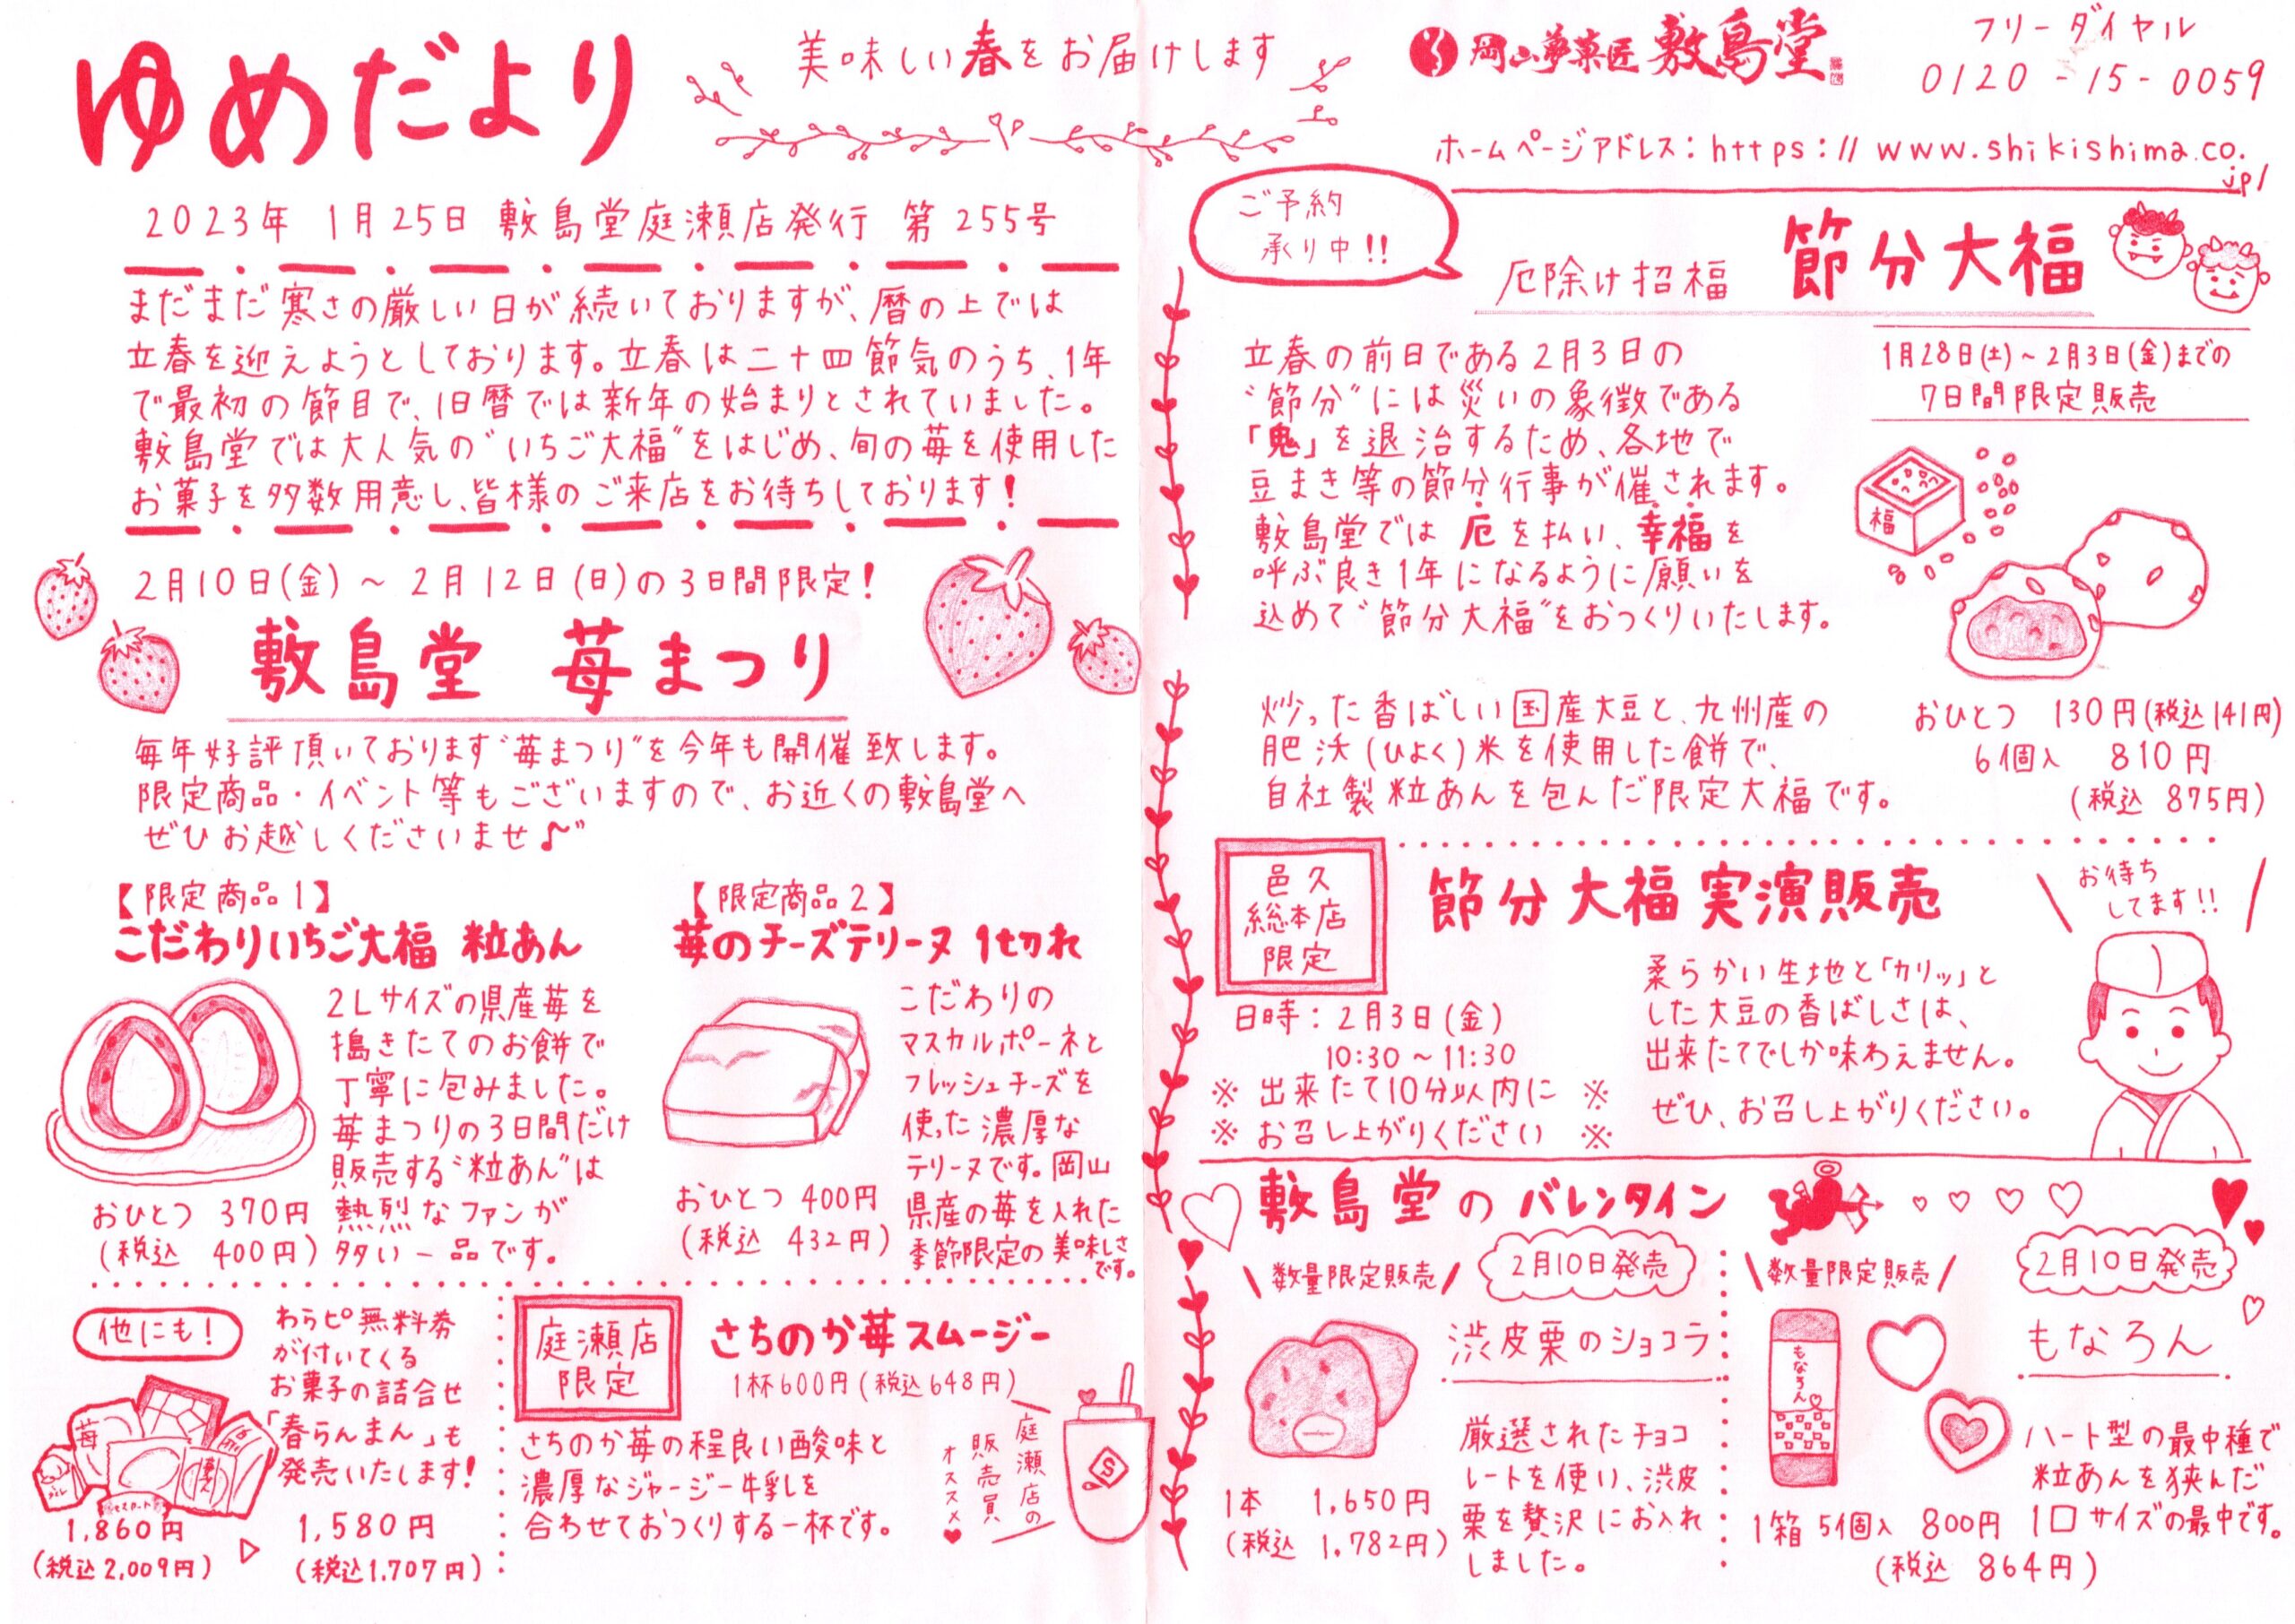 ゆめだより
美味しい春をお届けします
岡山夢菓匠 敷島堂
フリーダイヤル
0120-15-0059
ホームページアドレス：https://www.shikishima.co.
jp/
2023年 1月25日 敷島堂庭瀬店発行 第255号
まだまだ寒さの厳しい日が続いておりますが、暦の上では
立春を迎えようとしております。立春は二十四節気のうち、1年
で最初の節目で、旧暦では新年の始まりとされていました。
敷島堂では大人気の"いちご大福"をはじめ、旬の苺を使用した
お菓子を多数用意し、皆様のご来店をお待ちしております！
2月10日(金)～2月12日(日)の3日間限定！
敷島堂 苺まつり
毎年好評頂いております"苺まつり"を今年も開催致します。
限定商品・イベント等もございますので、お近くの敷島堂へ
ぜひお越しくださいませ♪"
【限定商品1】
こだわりいちご大福 粒あん
2Lサイズの県産苺を
搗きたてのお餅で
丁寧に包みました。
苺まつりの3日間だけ
販売する"粒あん"は
熱烈なファンが
多い一品です。
おひとつ 370円
(税込 400円)
【限定商品2】
苺のチーズテリーヌ 1切れ
こだわりの
マスカルポーネと
フレッシュチーズを
使った濃厚な
テリーヌです。岡山
県産の苺を入れた
季節限定の美味しさ
です。
おひとつ 400円
(税込 432円)
他にも！
わらピ無料券
が付いてくる
お菓子の詰合せ
「春らんまん」も
発売いたします！
苺
1,860円
(税込2,009円)
▷
1,580円
(税込1,707円)
庭瀬店
限定
さちのか苺スムージー
1杯600円(税込648円)
さちのか苺の程良い酸味と
濃厚なジャージー牛乳を
合わせておつくりする一杯です。
庭瀬店の
販売員
オススメ♥
S
ご予約
承り中!!
厄除け招福 節分大福
1月28日(土)～2月3日(金)までの
7日間限定販売
立春の前日である2月3日の
"節分"には災いの象徴である
「鬼」を退治するため、各地で
豆まき等の節分行事が催されます。
敷島堂では厄を払い、幸福を
呼ぶ良き1年になるように願いを
込めて"節分大福"をおつくりいたします。
福
炒った香ばしい国産大豆と、九州産の
肥沃(ひよく)米を使用した餅で、
自社製粒あんを包んだ限定大福です。
おひとつ 130円(税込141円)
6個入 810円
(税込 875円)
邑久
総本店
限定
節分大福実演販売
日時：2月3日(金)
10:30～11:30
※ 出来たて10分以内に ※
※ お召し上がりください ※
柔らかい生地と「カリッ」と
した大豆の香ばしさは、
出来たてでしか味わえません。
ぜひ、お召し上がりください。
お待ち
してます!!
敷島堂のバレンタイン
\数量限定販売/
2月10日発売
渋皮栗のショコラ
厳選されたチョコ
レートを使い、渋皮
栗を贅沢にお入れ
しました。
1本 1,650円
(税込 1,782円)
\数量限定販売/
2月10日発売
もなろん
もなろん
ハート型の最中種で
粒あんを挟んだ
1口サイズの最中です。
1箱 5個入 800円
(税込 864円)